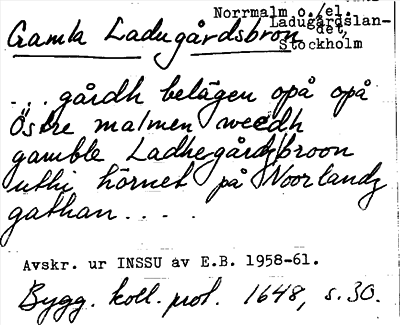 Norrmalm o./el.
Ladugårdslan-
det,
Stockholm
Gamla Ladugårdsbron
...gårdh belägen opå opå
Östre malmen weedh
gamble Ladhegårdzbroon
uthi hörnet på Noorlandz
gathan.....
Avskr. ur INSSU av E.B. 1958-61.
Bygg. koll. prot. 1648, s. 30.